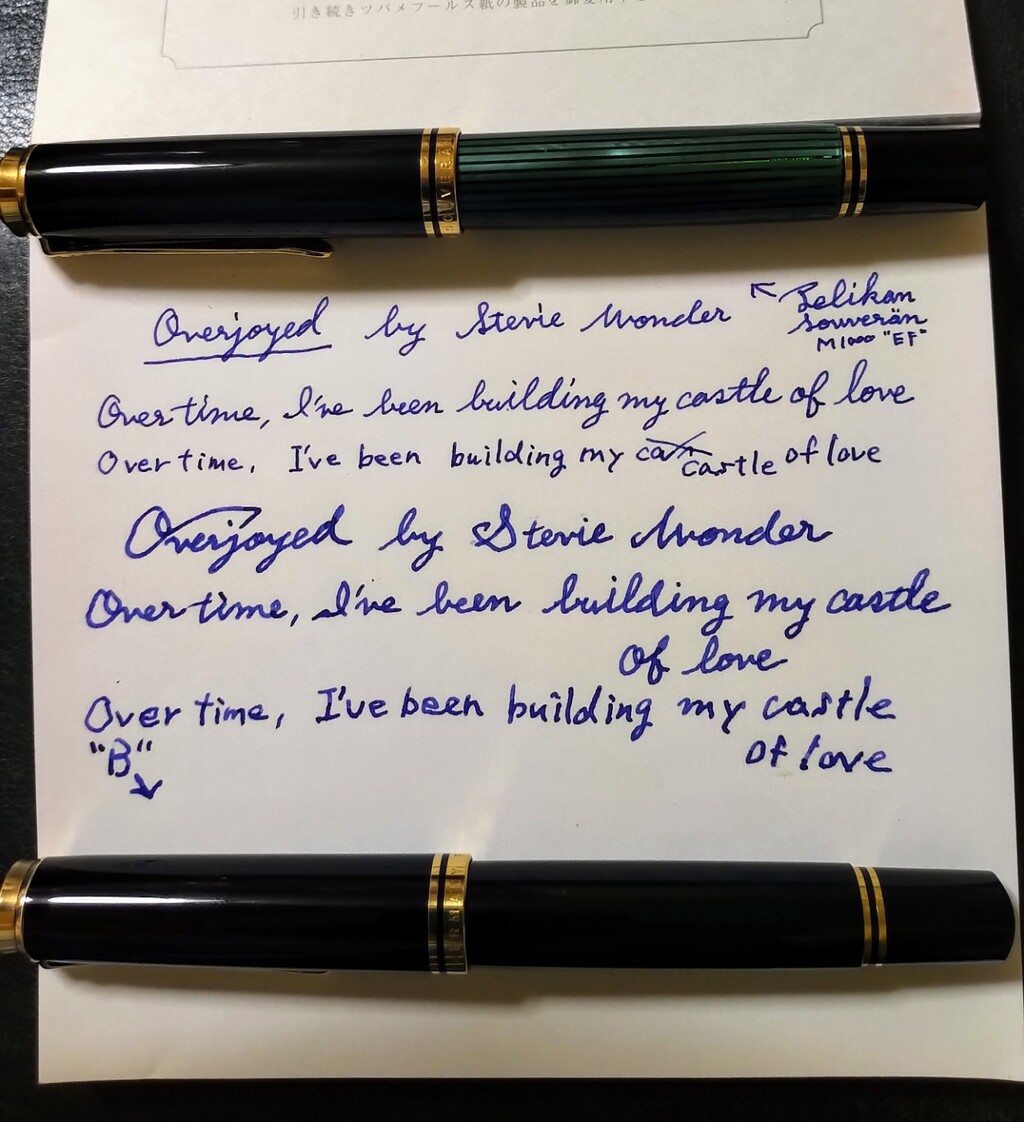 引き続きツバメフールス紙の製品を御愛用
SOUVERÄN
Overjoyed by Stevie Wonder ↖ Pelikan
Souverän
M1000 "EF"
Over time, I've been building my castle of love
Over time, I've been building my castle of love
Overjoyed by Stevie Wonder
Over time, I've been building my castle
of love
Over time, I've been building my castle
of love
"B"
↘